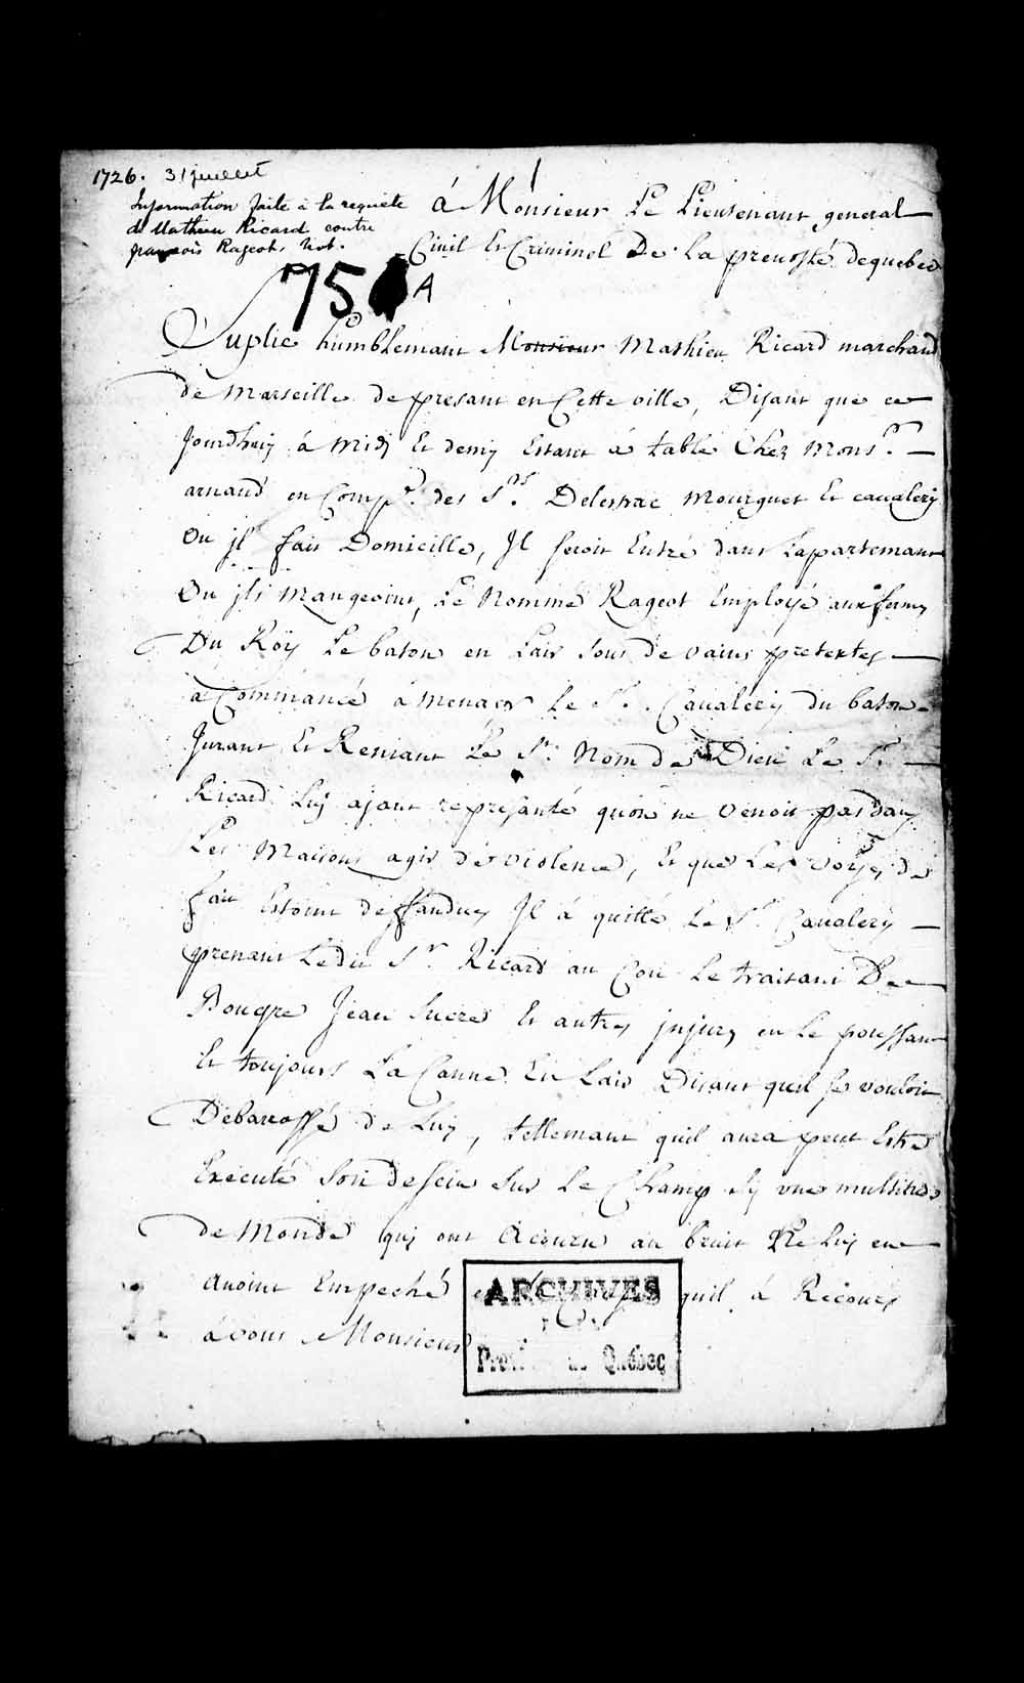 1726. 31 juillet
Information faite à la requete
de Mathieu Ricard contre
françois Rageot Not.
1
á Monsieur Le Lieutenant general
Civil Et Criminel De La prevosté dequebec
75 A
Suplie humblemant Monsieur Mathieu Ricard marchand
de Marseille de presant en Cette ville, Disant que ce
Jourdhuy á Midy Et demy Estant á table Chez Mons.r
arnaud en Comp.e des S.rs Delestrac Mourguet Et cavalery
Ou jl fait Domicille, Jl seroit Entré dans Lapartemant
Ou jls Mangeoint, Le Nommé Rageot Employé aux fermes
Du Roÿ Le baton en Lair sous de vains pretextes
a Commancé á menacer Le S.r Cavalery du baton
Jurant Et Reniant Le S.t Nom de Dieu Le S.r
Ricard Luy ajant represanté quon ne venoit pas dans
Les Maisons agir de violence, Et que Les voÿes de
fait Estoint deffandues Jl á quitté Le S.r Cavalery
prenant Ledit S.r Ricard au Coü Le traitant De
Bougre Jean Sucre Et autres jnjures en Le poussant
Et toujours La Canne En Lair Disant quil se vouloit
Debarrassé de Luy, tellemant quil aura peut Estre
Executé Son dessein sur Le Champ sy une multitude
de Monde quy ont Acouru au bruit Ne Luy en
Avoint Empeché quil á Recours
á vous Monsieur
ARCHIVES
Québec